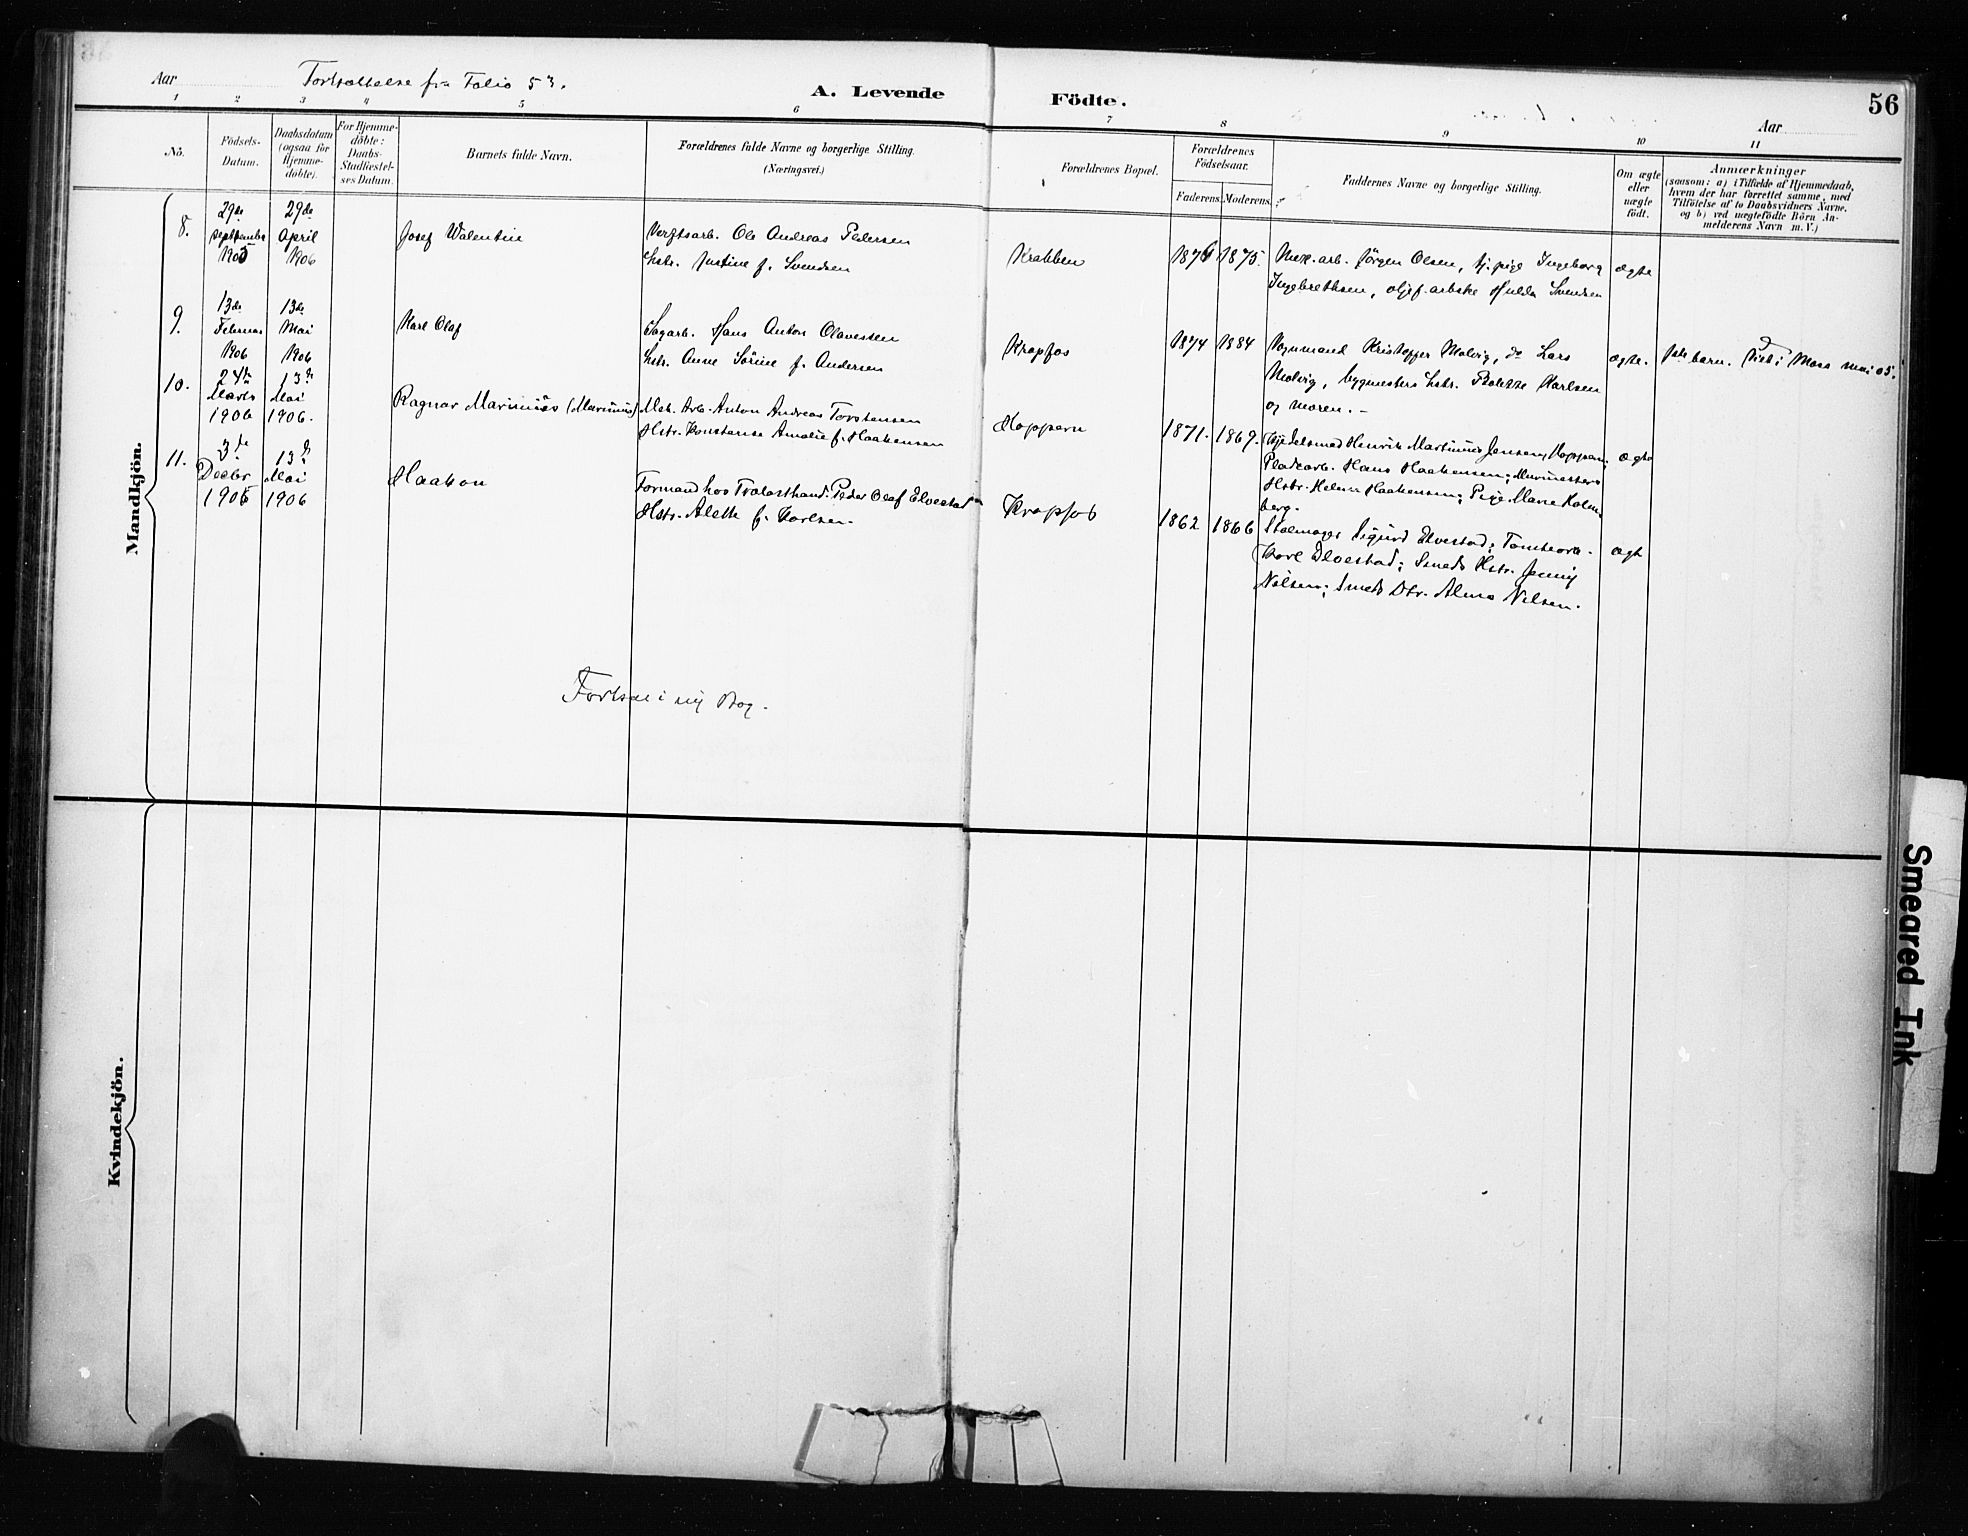 Aar
Fortsættelse fra Folio 53.
A. Levende
Födte.
Aar
56
1 2 3 4 5 6 7 8 9 10 11
No.
Födsels-
Datum.
Daabsdatum
(ogsaa for
Hjemme-
döbte).
For Hjemme-
döbte:
Daabs-
Stadfæstel-
ses Datum.
Barnets fulde Navn.
Forældrenes fulde Navne og borgerlige Stilling.
(Næringsvei.)
Forældrenes Bopæl.
Forældrenes
Födselsaar.
Faderens. Moderens.
Faddernes Navne og borgerlige Stilling.
Om ægte
eller
uægte
födt.
Anmærkninger
(saasom: a) i Tilfælde af Hjemmedaab,
hvem der har forrettet samme, med
Tilföielse af to Daabsvidners Navne.
og b) ved uægtefödte Börn An-
melderens Navn m. V.)
Mandkjön.
8.
29de
September
1905
29de
April
1906
Josef Walentin
Verftsarb. Ole Andreas Pedersen
hstr. Justine f. Svendsen
Krabben
1876 1875.
arb. Jörgen Olsen, tj. pige Ingeborg
Ingebrethsen, Hulda Svendsen
ægte
9.
13de
Februar
1906
13de
Mai
1906
Karl Olaf
Sagarb. Hans Anton Olavessen
hstr. Anne Sörine f. Andersen
Krapfos
1874 1884
Vognmand Kristoffer Molvig, do Lars
Molvig, bygmesters hstr. Karlsen
og moren. -
ægte.
barn. Viet i Moss mai 05.
10.
24de
Marts
1906
13de
Mai
1906.
Ragnar Marinius (Marinius)
Mek. Arb. Anton Andreas Torstensen
Hstr. Konstanse Amalie f. Haakensen
Noppern
1871. 1869.
Kjedelsmed Henrik Martinius Jensen,
Pladearb. Hans Haakensen; Murmesters
Hstr. Helene Haakensen; Pige Marie Holm-
berg.
ægte
11.
3de
Decbr
1905
13de
Mai
1906
Haakon
Formand hos Trælasthandl. Peder Olaf Elvestad
Hstr. Alette f. Karlsen.
Krapfos
1862 1866
Sigurd Elvestad; Tomtearb.
Karl Elvestad; Smeds Hstr. Jenny
Nilsen; Smeds Dtr. Alma Nilsen.
ægte
Fortsat i ny Bog.
Kvindekjön.
Smeared Ink